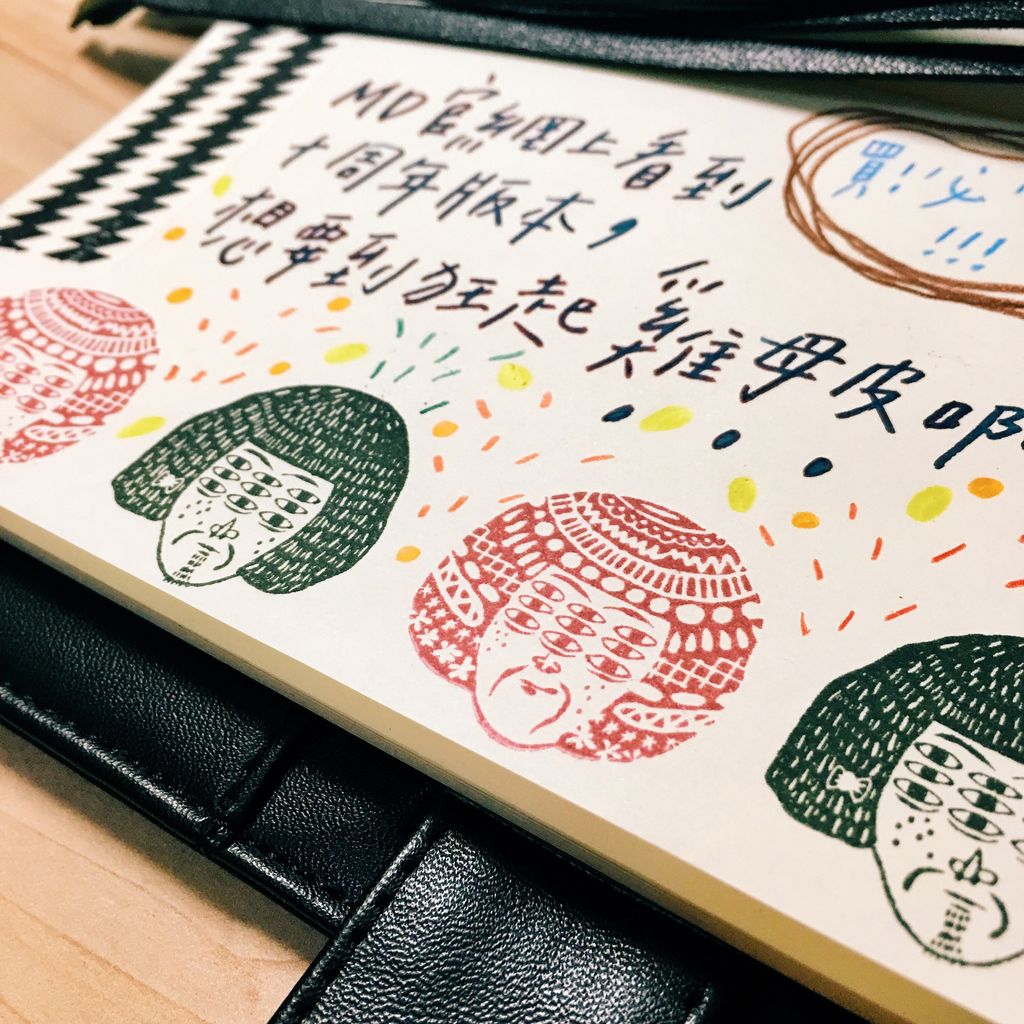 MD官網上看到
十周年版本，
想要到狂起雞母皮啊
買!必
!!!